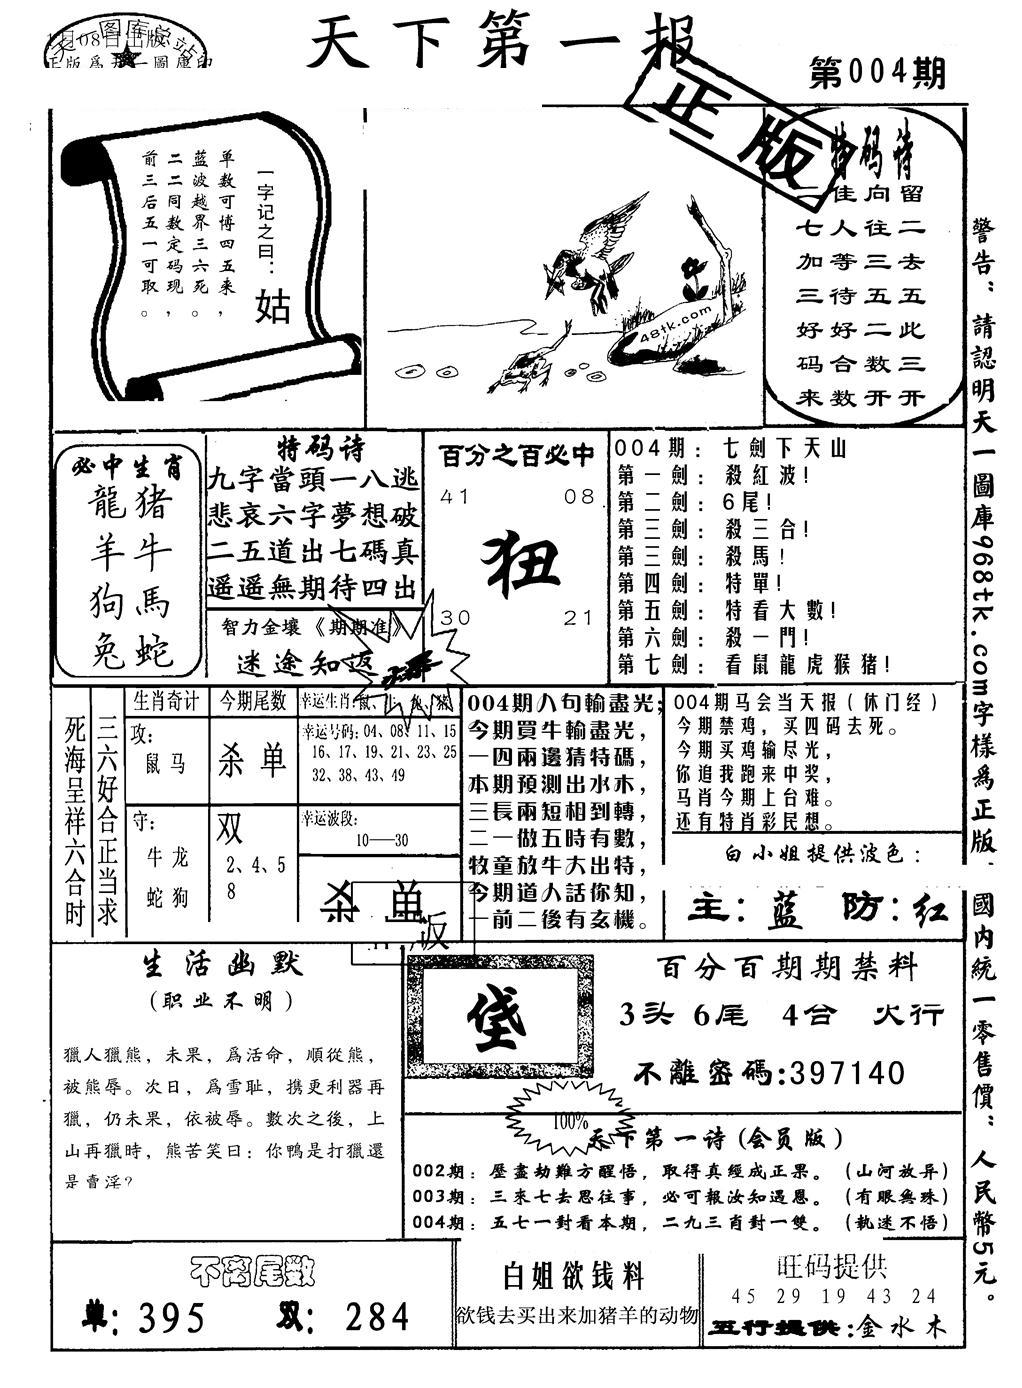 天一图库总站
1月08日出版
正版爲天一圖庫印
天下第一报
第004期
正版
一字记之曰：姑
单数可博四五来，
蓝波越界三六死，
二二同数定码现，
前三后五一可取。
48tk.com
特码诗
留二去五此三开
向往三五二数开
佳人等待好合数
二七加三好码来
警告：請認明天一圖庫968tk.com字樣爲正版，國内統一零售價：人民幣5元。
必中生肖
龍豬
羊牛
狗馬
兔蛇
特码诗
九字當頭一八逃
悲哀六字夢想破
二五道出七碼真
遥遥無期待四出
智力金壤《期期准》
迷途知返
百分之百必中
41 08
狃
30 21
004期：七劍下天山
第一劍：殺紅波！
第二劍：6尾！
第三劍：殺三合！
第三劍：殺馬！
第四劍：特單！
第五劍：特看大數！
第六劍：殺一門！
第七劍：看鼠龍虎猴豬！
三六好合正当求
死海呈祥六合时
生肖奇计
攻：
鼠马
守：
牛龙
蛇狗
今期尾数
杀单
双
2、4、5
8
幸运生肖：鼠、牛、兔、猪
幸运号码：04、08、11、15
16、17、19、21、23、25
32、38、43、49
幸运波段：
10——30
杀单
版
004期八句輸盡光；
今期買牛輸盡光，
一四兩邊猜特碼，
本期預測出水木，
三長兩短相到轉，
二一做五時有數，
牧童放牛大出特，
今期道人話你知，
一前二後有玄機。
004期马会当天报（休门经）
今期禁鸡，买四码去死。
今期买鸡输尽光，
你追我跑来中奖，
马肖今期上台难。
还有特肖彩民想。
白小姐提供波色：
主：蓝 防：红
生活幽默
（职业不明）
獵人獵熊，未果，爲活命，順從熊，
被熊辱。次日，爲雪耻，携更利器再
獵，仍未果，依被辱。數次之後，上
山再獵時，熊苦笑曰：你鴨是打獵還
是賣淫？
垡
百分百期期禁料
3头 6尾 4合 火行
不離密碼：397140
100%
天下第一诗（会员版）
002期：歷盡劫難方醒悟，取得真經成正果。（山河放异）
003期：三來七去思往事，必可報汝知遇恩。（有眼無珠）
004期：五七一對看本期，二九三肖對一雙。（執迷不悟）
不离尾数
单：395 双：284
白姐欲钱料
欲钱去买出来加猪羊的动物
旺码提供
45 29 19 43 24
五行提供：金水木